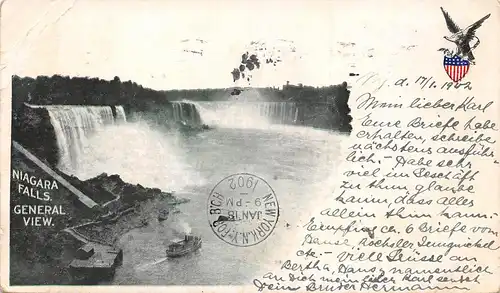 NIAGARA
FALLS.
GENERAL
VIEW.
NEW YORK, N.Y. TOP. B'CH
JAN 18
9 - PM
1902
d. 17/1. 1902
Mein lieber Karl
Eure Briefe habe
erhalten, schreibe
nächstens ausführ-
lich. - Habe sehr
viel im Geschäft
zu thun glaube
kaum, dass alles
allein thun kann.-
Empfing ca. 6 Briefe von
etc. - viele Grüsse an
Bertha, Hans, namentlich
an Dich mein lieber Karl sendet
Dein Bruder Hermann